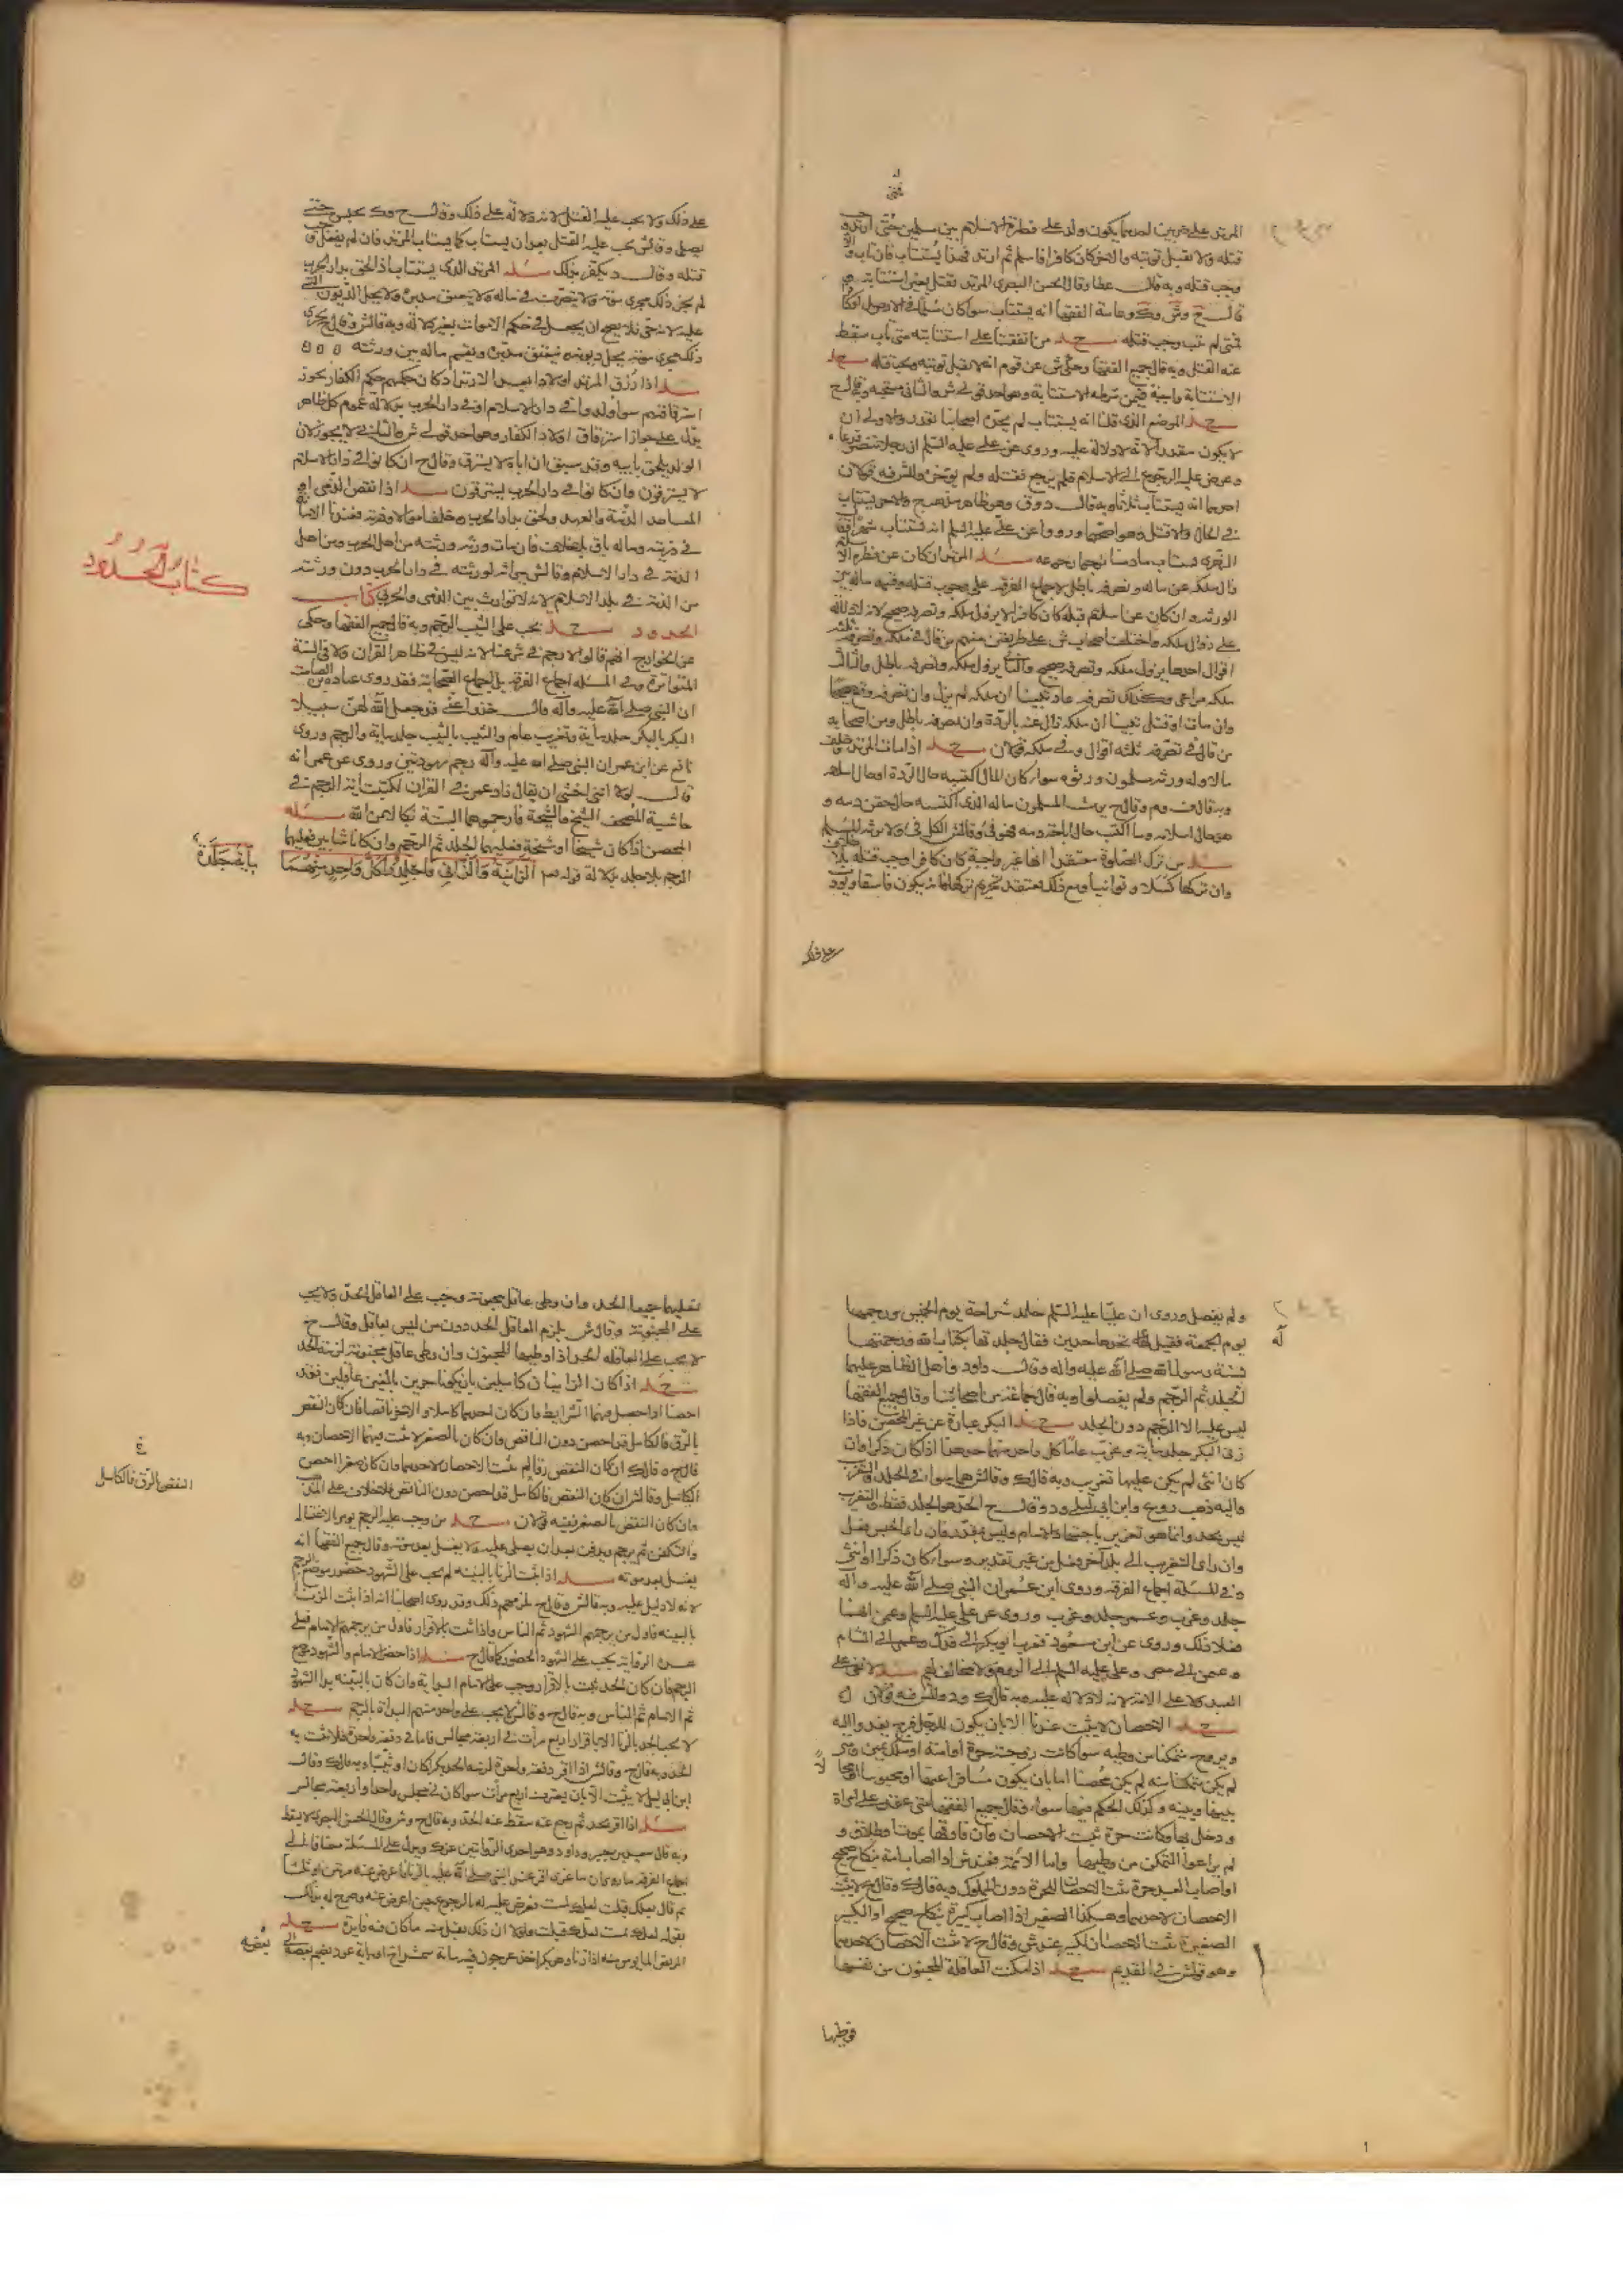 المرتد على ضربين احدهما يكون ولد على فطرة الاسلام بين مسلمين فمتى ارتد وجب
قتله ولا تقبل توبته والاخر كان كافرا فاسلم ثم ارتد فهذا يستتاب فان تاب والا
وجب قتله وبه قال عطا وقال الحسن البصري المرتد يقتل بغير استتابة
قال ح وش وك وعامة الفقها انه يستتاب سوا كان مسلما في الاصل او كافرا
فمتى لم يتب وجب قتله من اتفقنا على استتابته متى تاب سقط
عنه القتل وبه قال جميع الفقها وحكى ش عن قوم انه لا تقبل توبته ويجب قتله
الاستتابة واجبة فيمن شرطه الاستتابة وهو احد قولي ش والثاني مستحبة وبه قال ح
الموضع الذي قلنا انه يستتاب لم يحده اصحابنا بقدر والاولى ان
لا يكون مقدرا لانه لا دلالة عليه وروي عن علي عليه السلم ان رجلا تنصر فدعاه
وعرض عليه الرجوع الى الاسلام فلم يرجع فقتله ولم يؤخره وللش فيه قولان
احدهما انه يستتاب ثلاثا وبه قال د وق وهو ظاهر مذهب ح والاخر يستتاب
في الحال والا قتل وهو اصحهما ورووا عن علي عليه السلم انه يستتاب شهرا وقال
المرتد ان كان عن فطرة الاسلام
زال ملكه عن ماله وتصرفه باطل لاجماع الفرقة على وجوب قتله وقسمة ماله بين
الورثة وان كان عن اسلام قبله كان كافرا لا يزول ملكه وتصرفه صحيح لانه لا دلالة
على زوال ملكه واختلف اصحاب ش على طريقين منهم من قال في ملكه وتصرفه ثلثة
اقوال احدها يزول ملكه وتصرفه صحيح والثاني يزول ملكه وتصرفه باطل والثالث
ملكه مراعى وكذلك تصرفه فان عاد تبينا ان ملكه لم يزل وان تصرفه وقع صحيحا
وان مات او قتل تبينا ان ملكه زال عنه بالردة وان تصرفه باطل ومن اصحابه
من قال في تصرفه ثلثه اقوال وفي ملكه قولان اذا مات المرتد وخلف
مالا وله ورثة مسلمون ورثوه سوا كان المال اكتسبه حال الردة او حال اسلامه
وبه قال ف وم وقال ح يرث المسلمون ماله الذي اكتسبه حال حقن دمه و
هو حال اسلامه وما اكتسب حال اباحة دمه فهو فيء وقال ش الكل فيء ولا يرثه المسلم
من ترك الصلوة معتقدا انها غير واجبة كان كافرا وجب قتله بلا خلاف
وان تركها كسلا وتوانيا ومع ذلك معتقد تحريم تركها فانه يكون فاسقا ويؤدب
على ذلك
على ذلك ولا يجب عليه القتل لانه لا دلالة على ذلك وقال ح وك يحبس حتى
يصلي وقال ش يجب عليه القتل بعد ان يستتاب كما يستتاب المرتد فان لم يفعل وجب
قتله وقال د يكفر بذلك المرتد الذي يستتاب اذا لحق بدار الحرب
لم يجز ذلك مجرى موته ولا يتصرف في ماله ولا يعتق مدبره ولا يحل الديون التي
عليه لانه حي فلا يصح ان يجعل في حكم الاموات بغير دلالة وبه قال ش وقال ح يجري
ذلك مجرى موته يحل ديونه فيعتق مدبره ويقسم ماله بين ورثته
اذا رزق المرتد اولادا بعد الارتداد كان حكمهم حكم الكفار يجوز
استرقاقهم سوا ولدوا في دار الاسلام او في دار الحرب بدلالة عموم كل ظاهر
يدل على جواز استرقاق اولاد الكفار وهو احد قولي ش والثاني لا يجوز لان
الولد يلحق بابيه وقد سبق ان اباه لا يسترق وقال ح ان كانوا في دار الاسلام
لا يسترقون وان كانوا في دار الحرب يسترقون اذا نقض الذمي او
المعاهد الذمة والعهد ولحق بدار الحرب وخلف اموالا وذرية فعندنا الامان
في ذريته وماله باق بلا خلاف فان مات ورثه ورثته من اهل الحرب ومن اهل
الذمة في دار الاسلام وقال ش ميراثه لورثته في دار الحرب دون ورثته
من الذمة في بلد الاسلام لانه لا توارث بين الذمي والحربي كتاب
كتاب الحدود
الحدود يجب على الثيب الرجم وبه قال جميع الفقها وحكي
عن الخوارج انهم قالوا لا رجم في شرعنا لانه ليس في ظاهر القران ولا في السنة
المتواترة وفي المسئله اجماع الفرقة بل اجماع الصحابة فقد روى عبادة بن الصامت
ان النبي صلى الله عليه وآله قال خذوا عني قد جعل الله لهن سبيلا
البكر بالبكر جلد ماية وتغريب عام والثيب بالثيب جلد ماية والرجم وروى
نافع عن ابن عمر ان النبي صلى الله عليه وآله رجم يهوديين وروي عن عمر انه
قال لولا انني اخشى ان يقال زاد عمر في القران لكتبت اية الرجم في
حاشية المصحف الشيخ والشيخة فارجموهما البتة نكالا من الله
المحصن اذا كان شيخا او شيخة فعليهما الجلد ثم الرجم وان كانا شابين فعليهما
الرجم بلا جلد بدلالة قوله الزانية والزاني فاجلدوا كل واحد منهما
ماية جلدة
ولم يفصل وروي ان عليا عليه السلم جلد شراحة يوم الخميس ورجمها
يوم الجمعة فقيل له تحدها حدين فقال جلدتها بكتاب الله ورجمتها
بسنة رسول الله صلى الله عليه واله وقال داود واهل الظاهر عليهما
الجلد ثم الرجم ولم يفصلوا وبه قال جماعة من اصحابنا وقال جميع الفقها
ليس عليه الا الرجم دون الجلد البكر عبارة عن غير المحصن فاذا
زنى البكر جلد ماية وغرب عاما كل واحد منهما حد هذا اذا كان ذكرا وان
كان انثى لم يكن عليها تغريب وبه قال ك وقال ش هما سوا في الجلد والتغريب
واليه ذهب وابن ابي ليلى ود وقال ح الحد هو الجلد فقط والتغريب
ليس بحد وانما هو تعزير باجتهاد الامام وليس بمقدر فان راى الحبس فعل
وان راى التغريب الى بلد آخر فعل من غير تقدير وسوا كان ذكرا او انثى
وفي المسئلة اجماع الفرقة وروى ابن عمر ان النبي صلى الله عليه واله
جلد وغرب وعمر جلد وغرب وروي عن علي عليه السلم وعمر انهما
فعلا ذلك وروي عن ابن مسعود فغرب ابو بكر الى فدك وعمر الى الشام
وعثمن الى مصر وعلي عليه السلم الى الروم ولا مخالف لهم لا نفي على
العبد ولا على الامة لانه لا دلالة عليه وبه قال ك ود وللش فيه قولان
الاحصان لا يثبت عندنا الا بان يكون للرجل فرج يغدو اليه
ويروح متمكنا من وطيه سوا كانت زوجته حرة او امة او ملك يمين ومتى
لم يكن متمكنا منه لم يكن محصنا اما بان يكون مسافرا عنها او محبوسا او
بينها وبينه وكذلك الحكم فيها سوا وقال جميع الفقها متى عقد على امراة
ودخل بها وكانت حرة ثبت الاحصان وان فارقها بموت او طلاق و
لم يراعوا التمكن من وطيها واما الامة فعند ش اذا اصاب امة بنكاح صحيح
او اصاب العبد حرة ثبت الاحصان للحرة دون المملوك وبه قال ك وقال ح لا يثبت
الاحصان لاحدهما وهكذا الصغير اذا اصاب كبيرة بنكاح صحيح او الكبير
الصغيرة ثبت الاحصان للكبير عند ش وقال ح لا يثبت الاحصان لاحدهما
وهو قول ش في القديم اذا مكنت العاقلة المجنون من نفسها
فوطئها
فعليهما جميعا الحد وان وطى عاقل مجنونة وجب على العاقل الحد ولا يجب
على المجنونة وقال ش يلزم العاقل الحد دون من ليس بعاقل وقال ح
لا يجب على العاقلة الحد اذا وطيها المجنون وان وطى عاقل مجنونة لزمه الحد
اذا كان الزانيان كاملين بان يكونا حرين بالغين عاقلين فقد
احصنا اذا حصل فيهما الشرايط فان كان احدهما كاملا والاخر ناقصا فان كان النقص
بالرق فالكامل قد احصن دون الناقص وان كان بالصغر لا يثبت فيهما الاحصان وبه
النقص بالرق فالكامل
قال ح وقال ك ان كان النقص رقا لم يثبت الاحصان لاحدهما وان كان صغرا احصن
الكامل وقال ش ان كان النقص فالكامل قد احصن دون الناقص
وان كان النقص بالصغر ففيه قولان من وجب عليه الرجم يؤمر بالاغتسال
والتكفين ثم يرجم ويدفن بعد ان يصلى عليه ولا يغسل بعد موته وقال جميع الفقها انه
يغسل بعد موته اذا ثبت الزنا بالبينه لم يجب على الشهود حضور موضع الرجم
لانه لا دليل عليه وبه قال ش وقال ح يلزمهم ذلك وقد روى اصحابنا انه اذا ثبت الزنا
بالبينه فاول من يرجمه الشهود ثم الناس واذا ثبت بالاقرار فاول من يرجمه الامام فعلى
هذه الرواية يجب على الشهود الحضور كما قال ح اذا حضر الامام والشهود موضع
الرجم فان كان الحد ثبت بالاقرار وجب على الامام البداية وان كان بالبينه بدا الشهود
ثم الامام ثم الناس وبه قال ح وقال ش لا يجب على واحد منهم البداة بالرجم
لا يجب الحد بالزنا الا باقرار اربع مرات في اربعة مجالس فاما في دفعة واحدة فلا يثبت به
الحد وبه قال ح وقال ش اذا اقر دفعة واحدة لزمه الحد بكرا كان او ثيبا وبه قال ك وقال
ابن ابي ليلى لا يثبت الا بان يعترف اربع مرات سوا كان في مجلس واحد او اربعة مجالس
اذا اقر بحد ثم رجع عنه سقط عنه الحد وبه قال ح وش وقال الحسن البصري لا يسقط
وبه قال سعيد بن جبير وداود وهو احدى الروايتين عن ك ويدل على المسئلة
اجماع الفرقة ما روي ان ماعزا اقر عند النبي صلى الله عليه بالزنا فاعرض عنه مرتين او ثلثا
ثم قال لعلك قبلت لعلك لمست فعرض عليه له بالرجوع حين اعرض عنه وصرح له بذلك
بقوله لعلك لمست لعلك قبلت فلولا ان ذلك يقبل منه ما كان فيه فايدة
المريض المايوس منه اذا زنا وهو بكر اخذ عرجون فيه ماية شمراخ
بعضه